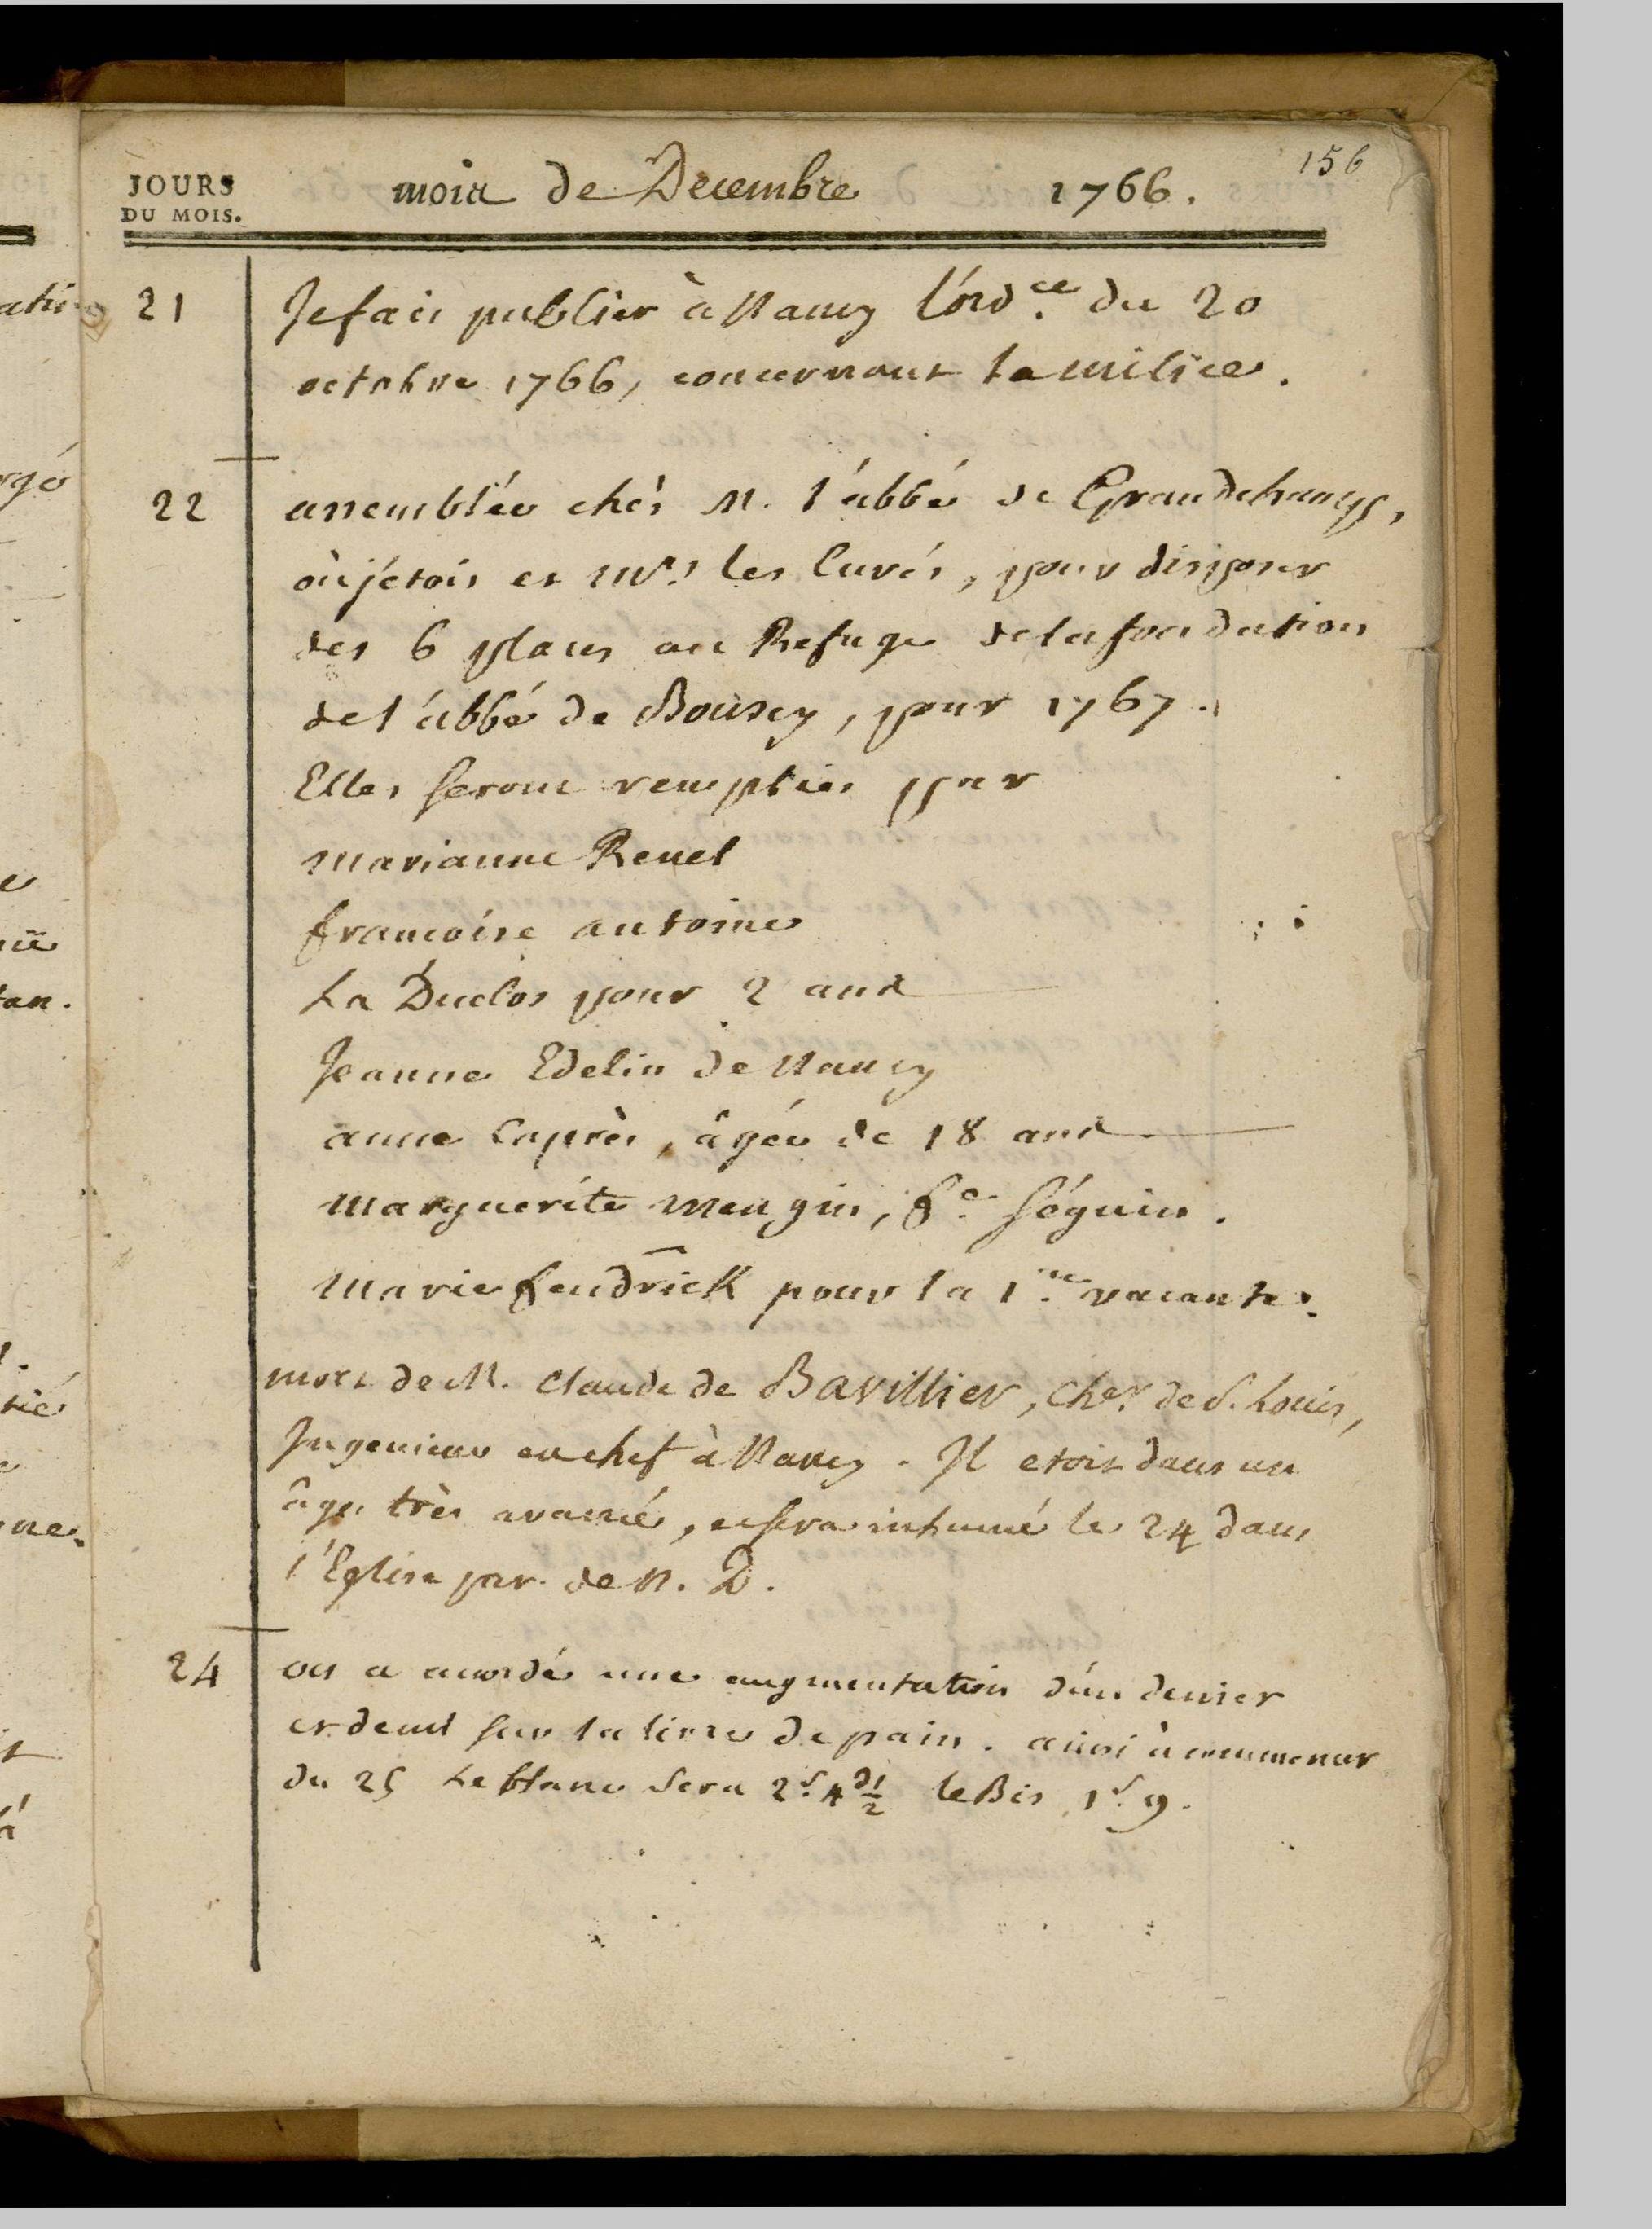 156
JOURS
DU MOIS.
mois de Decembre 1766.
21 Je fais publier à Nancy l'ord.ce du 20
octobre 1766, concernant la milice.
22 assemblée chés M. l'abbé de Grandchamps,
où j'etois et Mrs. les Curés, pour disposer
des 6 places au Refuge de la fondation
de l'abbé de Bousey, pour 1767.
Elles seront remplies par
Marianne Renel
francoise antoine
La Duclos pour 2 ans
Jeanne Edelin de Nancy
anne Cuprès, âgée de 18 ans
Marguerite Mengin, fe. Séguin.
Marie fendrick pour la 1.re vacante.
mort de M. Claude de Bavillier, Cher. de S. Louis,
Ingenieur en chef à Nancy. Il etoit dans un
âge très avancé, et sera inhumé le 24 dans
l'Eglise par. de N. D.
24 on a acordé une augmentation d'un denier
et demi sur la livre de pain. ainsi à commencer
du 25 Le blanc sera 2s. 4 d 1/2 le Bis 1s. 9.